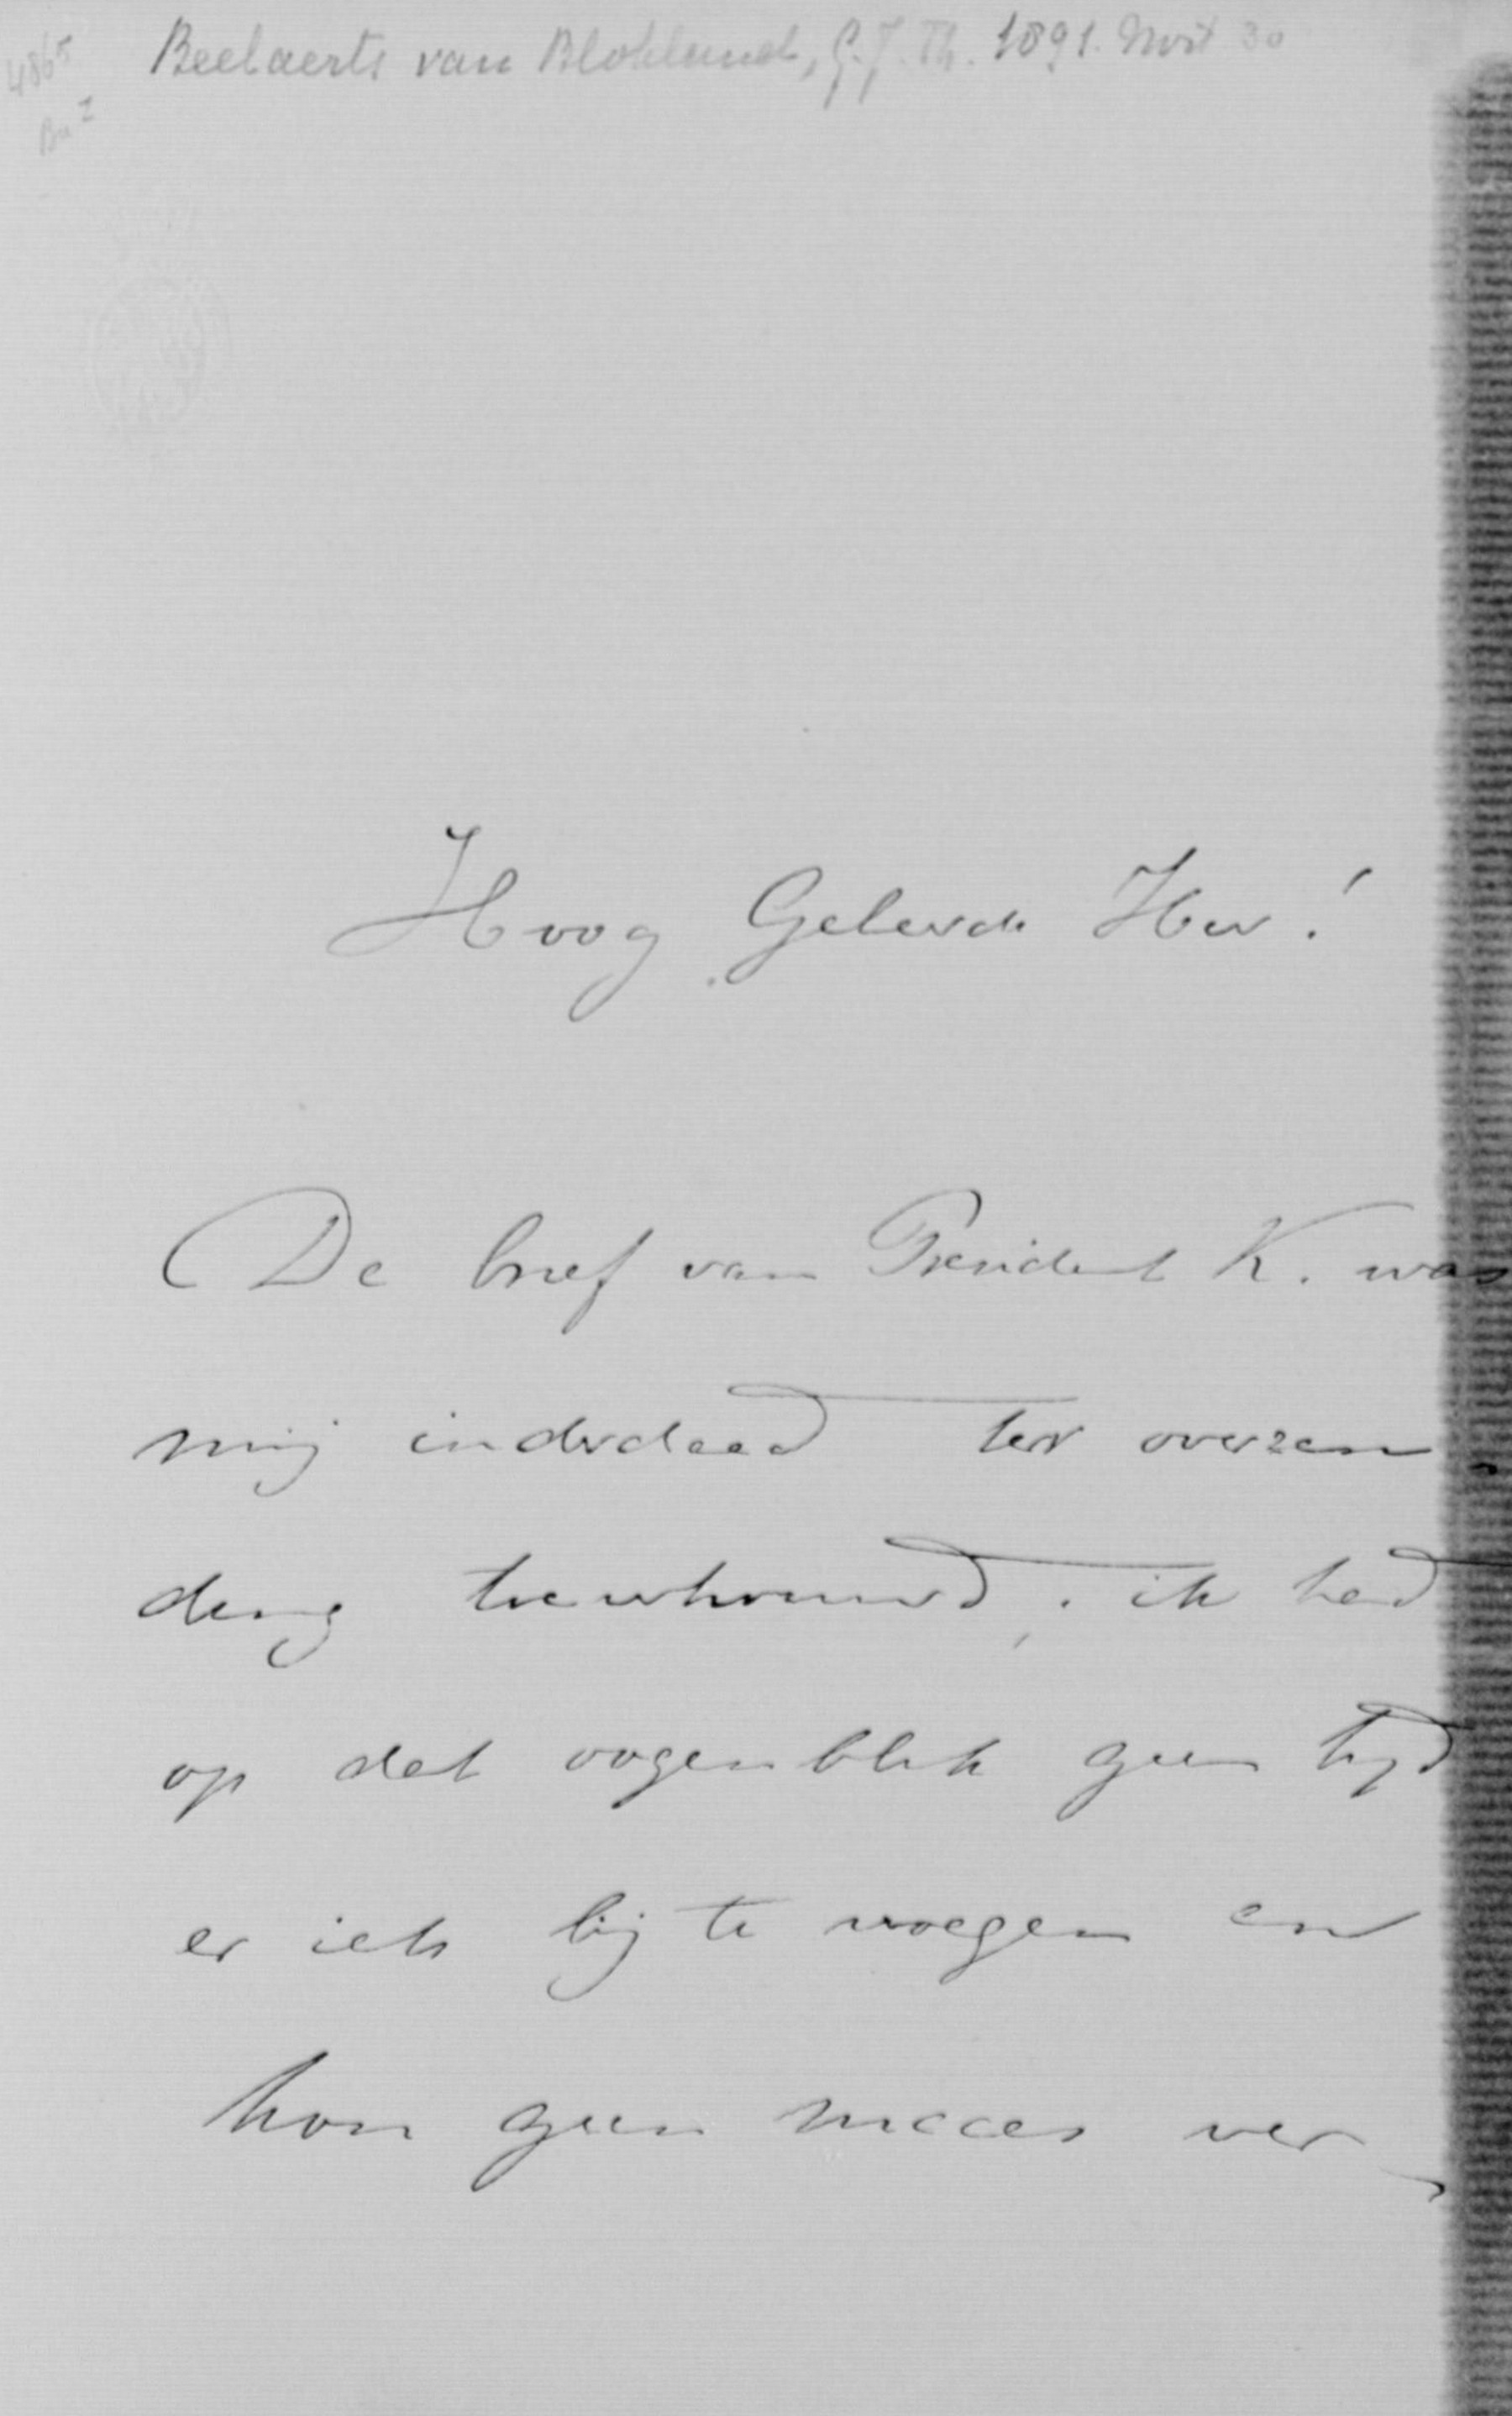 Beelaerts van Blokland, G.J.Th. 1891. Nov 30
4865
Hoog Geleerde Heer!
De brief van President K. was
mij inderdaad ter overzen-
ding toevertrouwd; ik had
op dat oogenblik geen tijd
er iets bij te voegen en
kon geen succes ver-